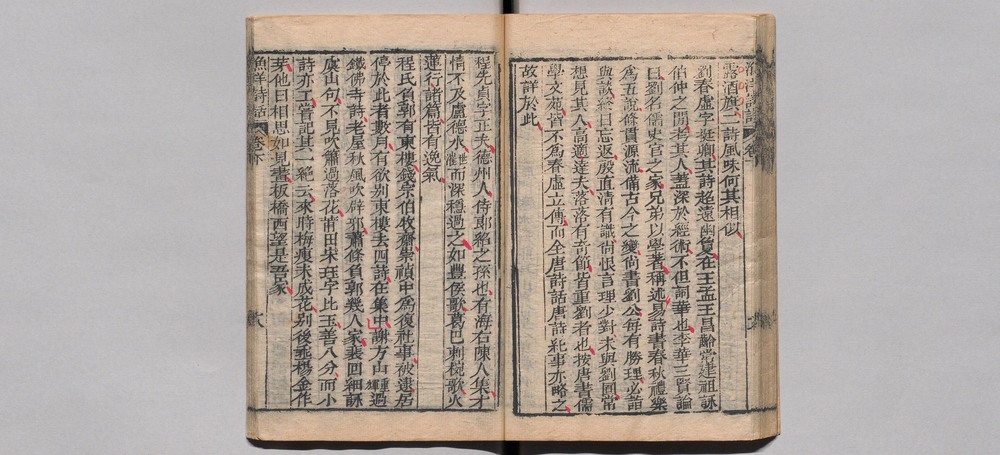 露酒旗二詩風味何其相似
劉眘虛字挺卿其詩超遠幽夐在王孟王昌齡常建祖詠
伯仲之間考其人蓋深於經術不但詞華也李華三賢論
曰劉名儒史官之家兄弟以學著稱述易詩書春秋禮樂
為五說條貫源流備古今之變尚書劉公每有勝理必詣
與談終日忘返殷直清有識尚恨言理少對未與劉面常
想見其人高適達夫落落有奇節皆重劉者也按唐書儒
學文苑皆不為眘虛立傳而全唐詩話唐詩紀事亦略之
故詳於此
程先貞字正夫德州人侍郎紹之孫也有海右陳人集才
情不及盧德水世㴶而深穩過之如豐侯歌葛巴剌梲歌火
蓮行諸篇皆有逸氣
程氏負郭有東樓錢宗伯牧齋崇禎中為復社事被逮居
停於此者數月有欲別東樓去四詩在集中謝方山重輝過
鐵佛寺詩老屋秋風吹辟邪蕭條負郭幾人家裴回細詠
虞山句不見吹簫過落花莆田宋玨字比玉善八分而小
詩亦工嘗記其一絕云來時梅瘦未成花別後垂楊金作
芽他日相思如見畫板橋西望是吾家
漁洋詩話 卷下